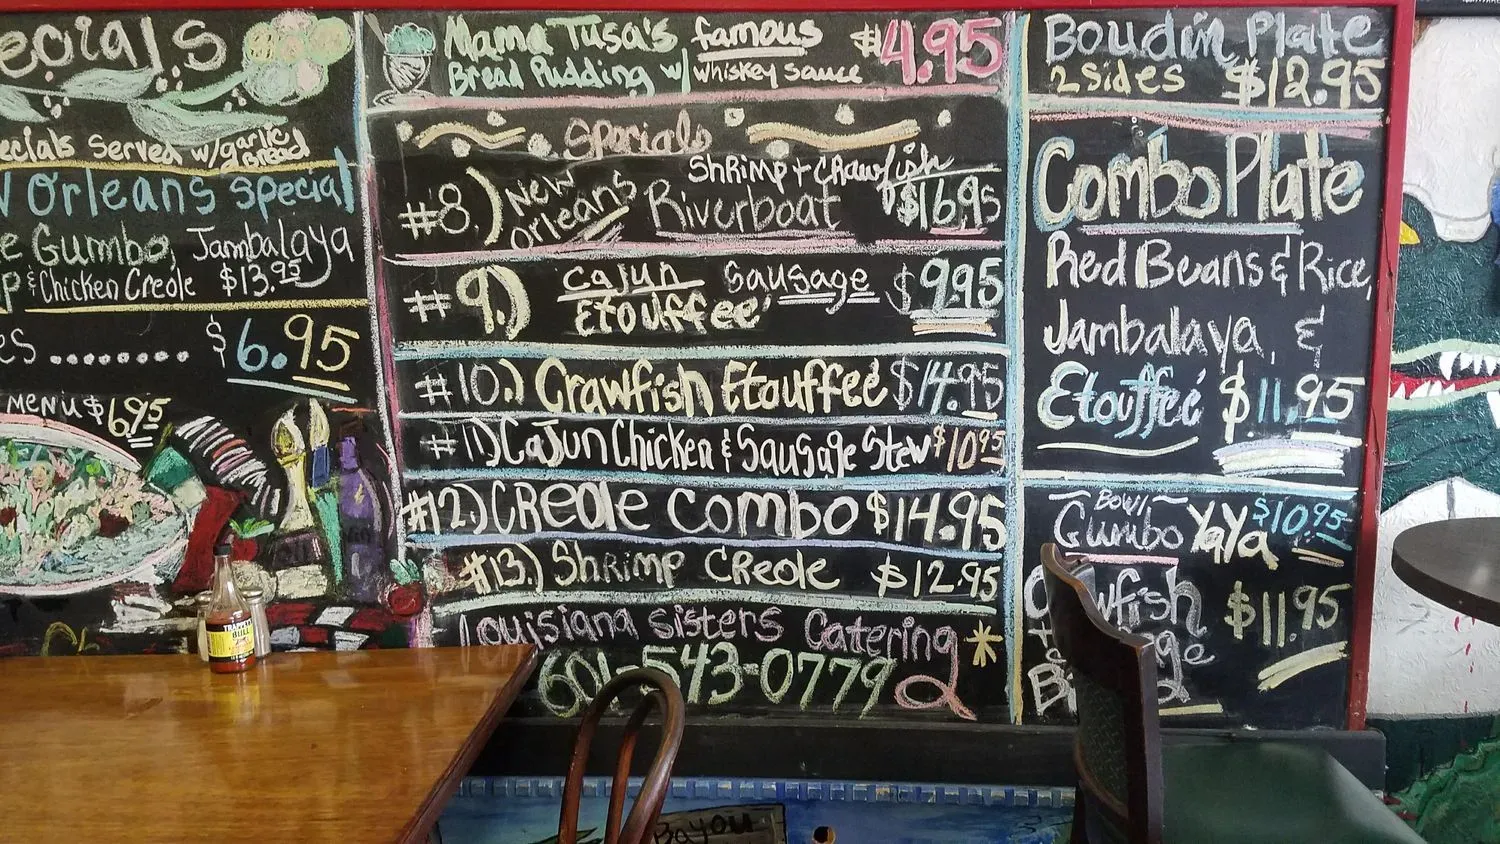 Specials
Served w/garlic
Bread
Orleans special
Gumbo, Jambalaya
& Chicken Creole $13.95
........ $6.95
MENU $6.95
TRAPPEY'S
BULL
Mama Tusa's famous $4.95
Bread Pudding w/ whiskey sauce
Specials
#8.) New Orleans Riverboat Shrimp + Crawfish $16.95
#9.) Cajun Sausage $9.95
Etouffeé
#10.) Crawfish Etouffeé $14.95
#11) Cajun Chicken & Sausage Stew $10.95
#12) Creole Combo $14.95
#13.) Shrimp Creole $12.95
Louisiana Sisters Catering
601-543-0779
Boudin Plate
2 Sides $12.95
Combo Plate
Red Beans & Rice,
Jambalaya, &
Etouffeé $11.95
Bowl
Gumbo YaYa $10.95
$11.95
Bayou